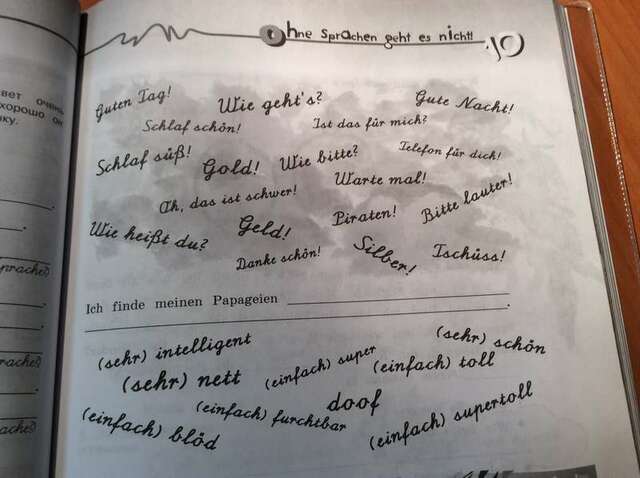 Ohne Sprachen geht es nicht! 10
вет очень
хорошо он
ку.
Guten Tag! Wie geht's? Gute Nacht!
Schlaf schön! Ist das für mich?
Schlaf süß! Gold! Wie bitte? Telefon für dich!
Ah, das ist schwer! Warte mal!
Wie heißt du? Geld! Piraten! Bitte lauter!
Danke schön! Silber! Tschüss!
prache)
Ich finde meinen Papageien
rache)
ache)
(sehr) intelligent (einfach) super (sehr) schön
(sehr) nett (einfach) toll
(einfach) blöd (einfach) furchtbar doof (einfach) supertoll